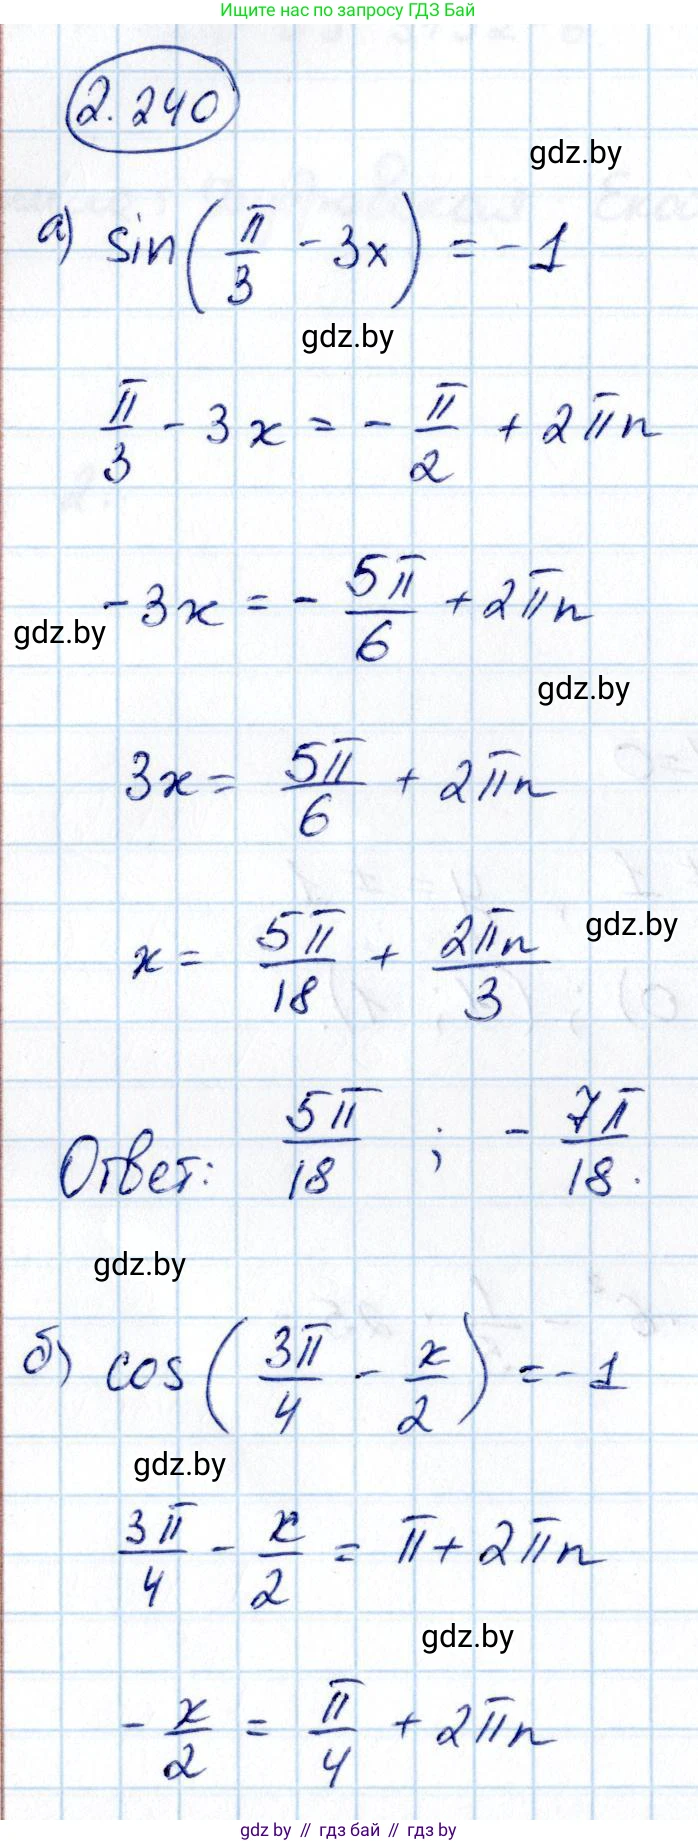 Ищите решения по запросу ГДЗ Бай
2.240
gdz.by
а) sin(π/3 - 3x) = -1
gdz.by
π/3 - 3x = -π/2 + 2πn
-3x = -5π/6 + 2πn
gdz.by
gdz.by
3x = 5π/6 + 2πn
gdz.by
x = 5π/18 + 2πn/3
Ответ: 5π/18 ; -7π/18.
gdz.by
б) cos(3π/4 - x/2) = -1
gdz.by
3π/4 - x/2 = π + 2πn
gdz.by
-x/2 = π/4 + 2πn
gdz.by // гдз бай // gdz.by